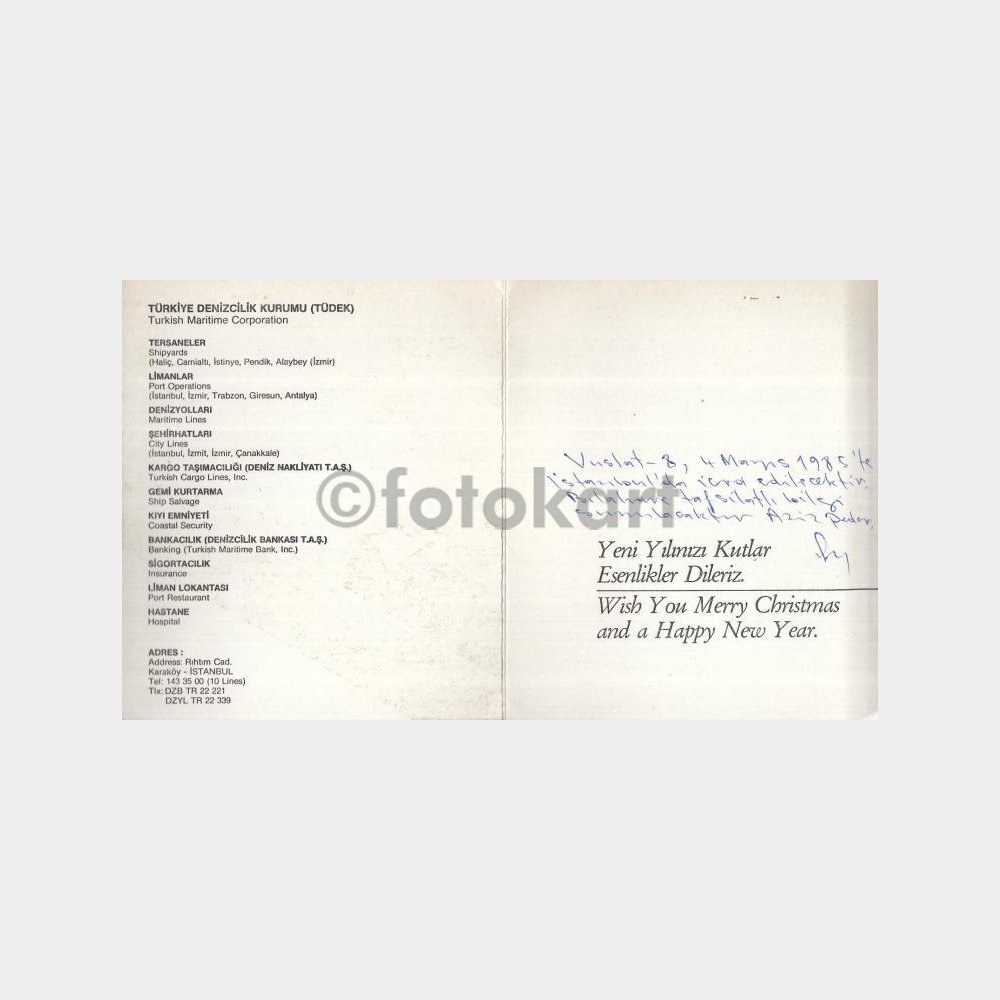 TÜRKİYE DENİZCİLİK KURUMU (TÜDEK)
Turkish Maritime Corporation
TERSANELER
Shipyards
(Haliç, Camialtı, İstinye, Pendik, Alaybey (İzmir)
LİMANLAR
Port Operations
(İstanbul, İzmir, Trabzon, Giresun, Antalya)
DENİZYOLLARI
Maritime Lines
ŞEHİRHATLARI
City Lines
(İstanbul, İzmit, İzmir, Çanakkale)
KARGO TAŞIMACILIĞI (DENİZ NAKLİYATI T.A.Ş.)
Turkish Cargo Lines, Inc.
GEMİ KURTARMA
Ship Salvage
KIYI EMNİYETİ
Coastal Security
BANKACILIK (DENİZCİLİK BANKASI T.A.Ş.)
Banking (Turkish Maritime Bank, Inc.)
SİGORTACILIK
Insurance
LİMAN LOKANTASI
Port Restaurant
HASTANE
Hospital
ADRES :
Address: Rıhtım Cad.
Karaköy - İSTANBUL
Tel: 143 35 00 (10 Lines)
Tlx: DZB TR 22 221
DZYL TR 22 339
©fotokart
Vuslat-8, 4 Mayıs 1985'te
İstanbul'da icra edilecektir.
Bilahare tafsilatlı bilgi
sunulacaktır Aziz Peder.
Yeni Yılınızı Kutlar
Esenlikler Dileriz.
Wish You Merry Christmas
and a Happy New Year.